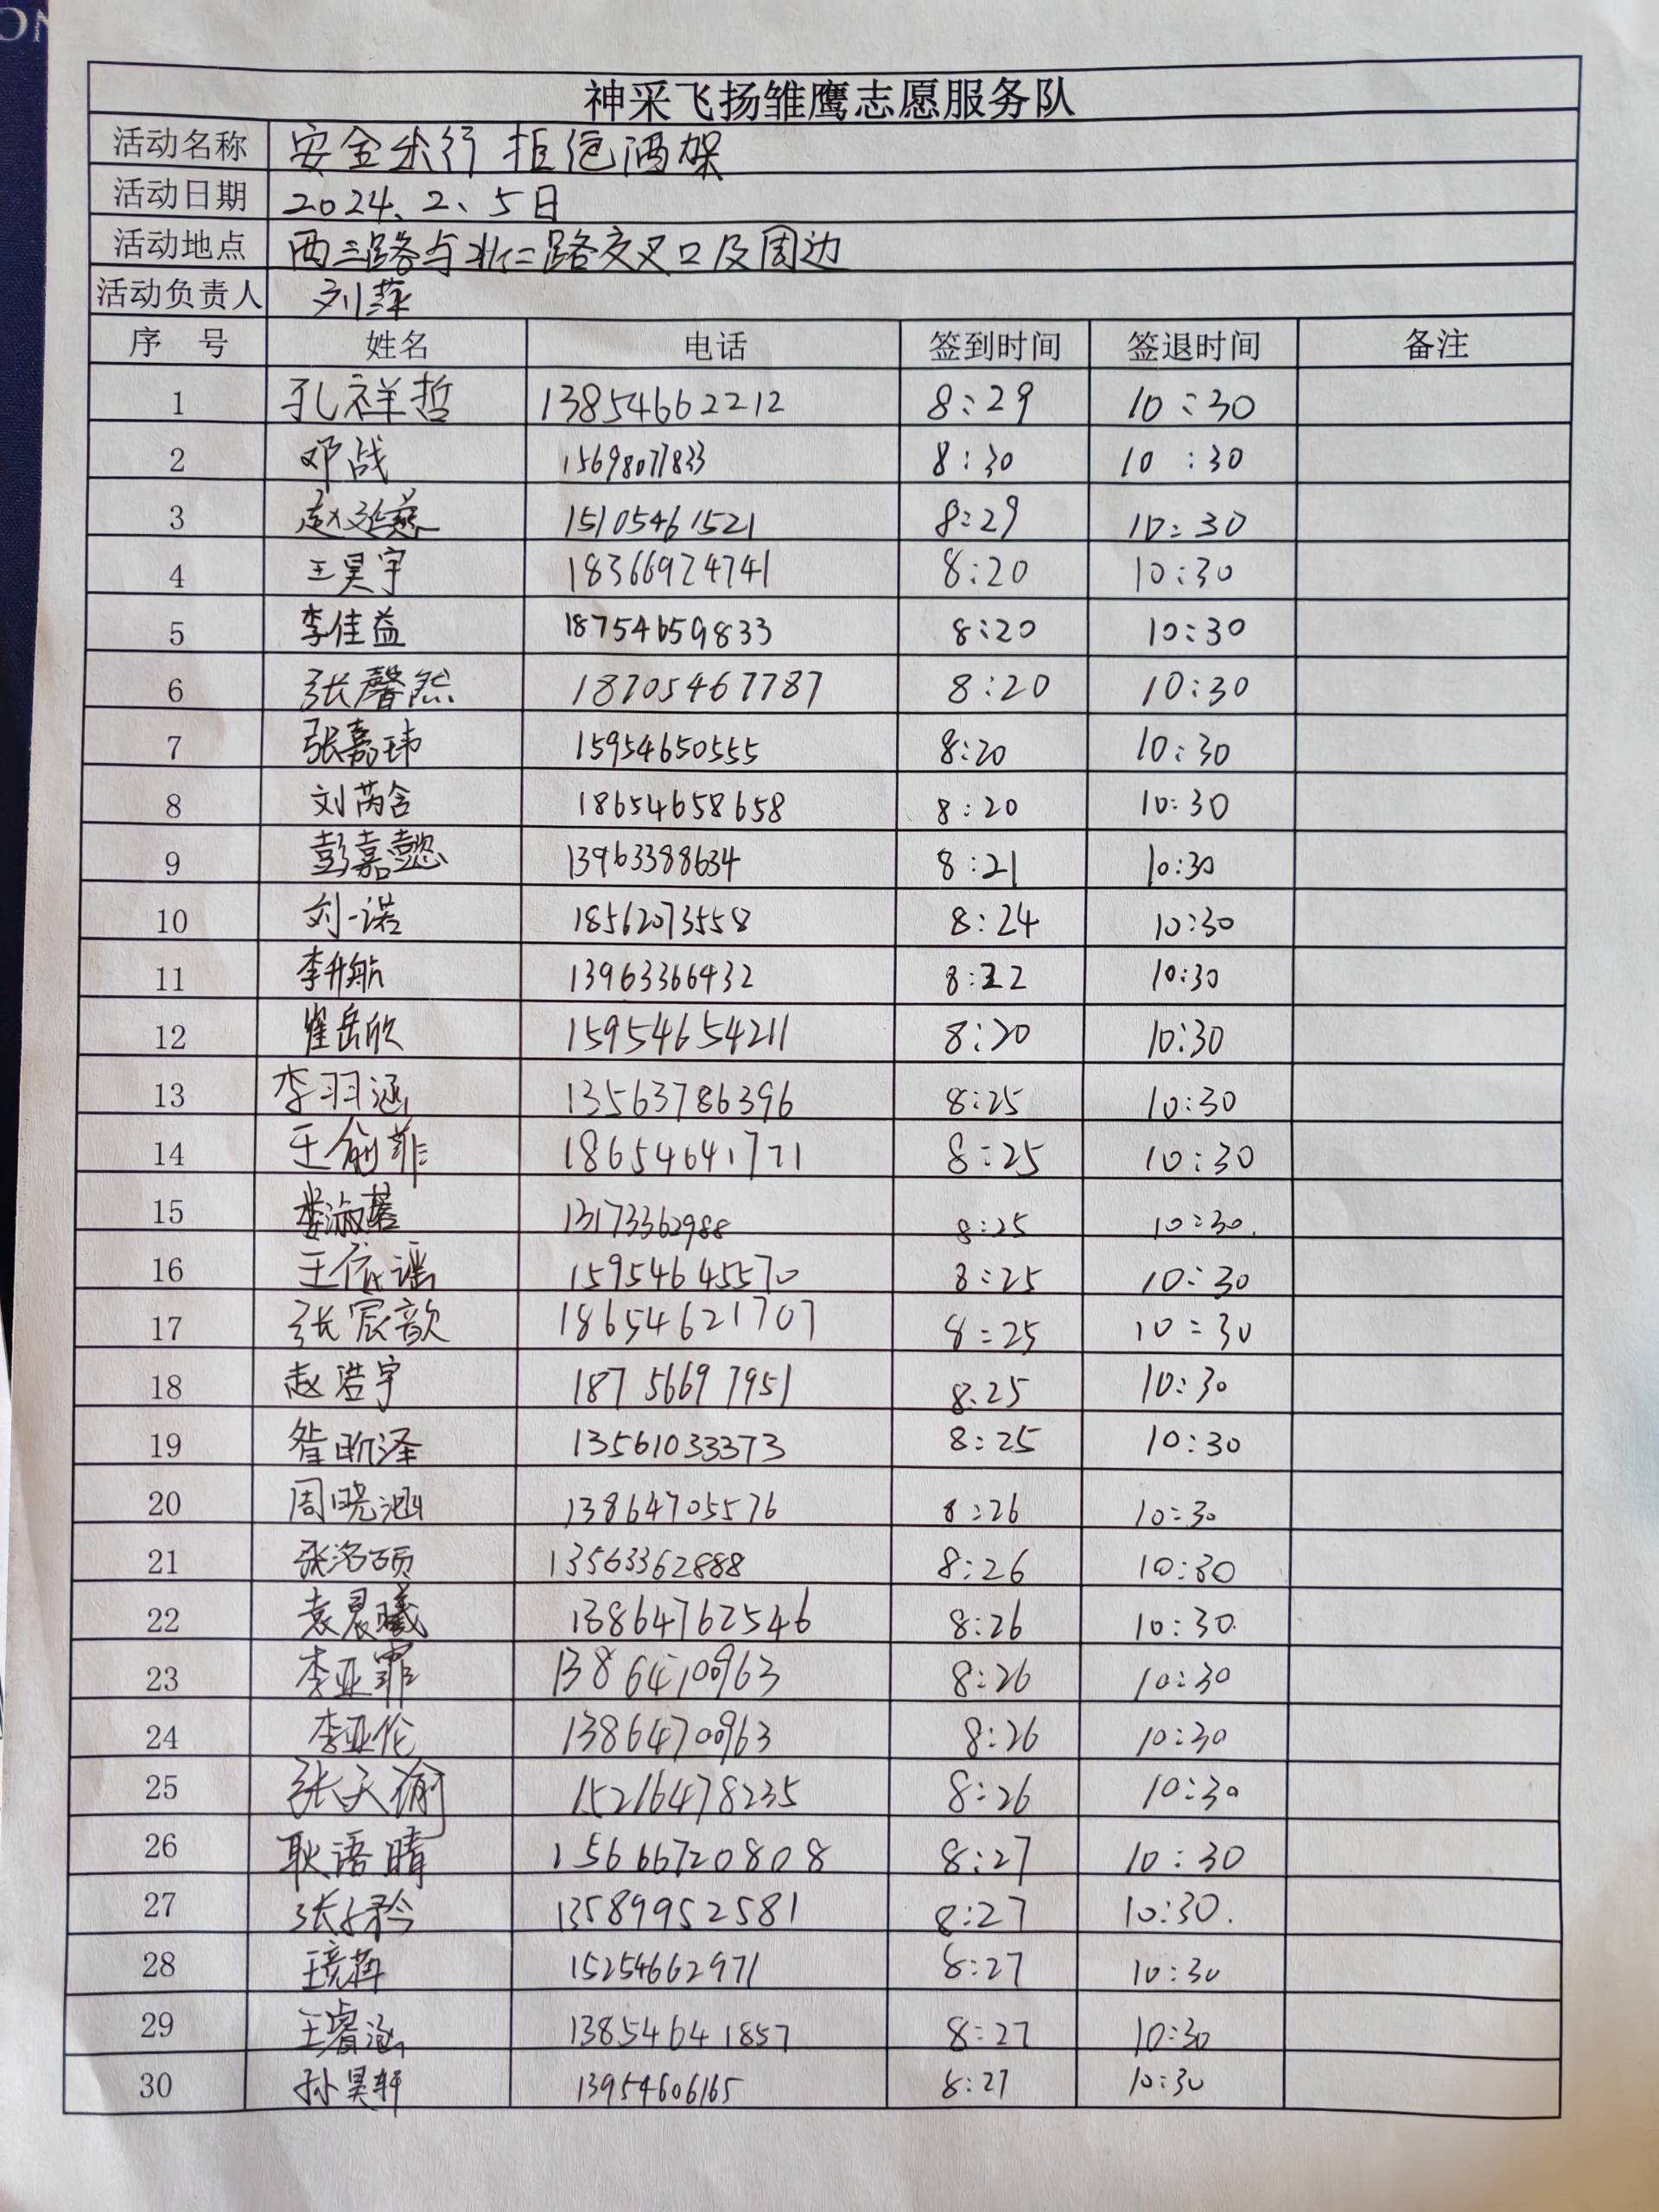 神采飞扬雏鹰志愿服务队
活动名称 安全出行 拒绝酒驾
活动日期 2024、2、5日
活动地点 西三路与北二路交叉口及周边
活动负责人 刘萍
序 号 姓名 电话 签到时间 签退时间 备注
1 孔祥哲 13854662212 8:29 10:30
2 邓战 15698077833 8:30 10:30
3 赵延燕 15105461521 8:29 10:30
4 王昊宇 18366924741 8:20 10:30
5 李佳益 18754659833 8:20 10:30
6 张馨然 18705467787 8:20 10:30
7 张嘉玮 15954650555 8:20 10:30
8 刘芮含 18654658658 8:20 10:30
9 彭嘉懿 13963388634 8:21 10:30
10 刘一诺 18562073558 8:24 10:30
11 李升航 13963366432 8:22 10:30
12 崔岳欣 15954654211 8:20 10:30
13 李羽涵 13563786396 8:25 10:30
14 王俞菲 18654641771 8:25 10:30
15 13173362988 8:25 10:30.
16 王依谣 15954645570 8:25 10:30
17 张宸歆 18654621707 8:25 10:30
18 赵浩宇 18756697951 8.25 10:30
19 昝昕泽 13561033373 8:25 10:30
20 周晓涵 13864705576 8:26 10:30
21 张洛硕 13563362888 8:26 10:30
22 袁晨曦 13864762546 8:26 10:30.
23 李亚霏 13864700963 8:26 10:30
24 李亚伦 13864700963 8:26 10:30
25 张天瑜 15216478235 8:26 10:30
26 耿语晴 15666720808 8:27 10:30
27 张子矜 13589952581 8:27 10:30.
28 15254662971 8:27 10:30
29 王睿涵 13854641857 8:27 10:30
30 孙昊轩 13954606165 8:27 10:30